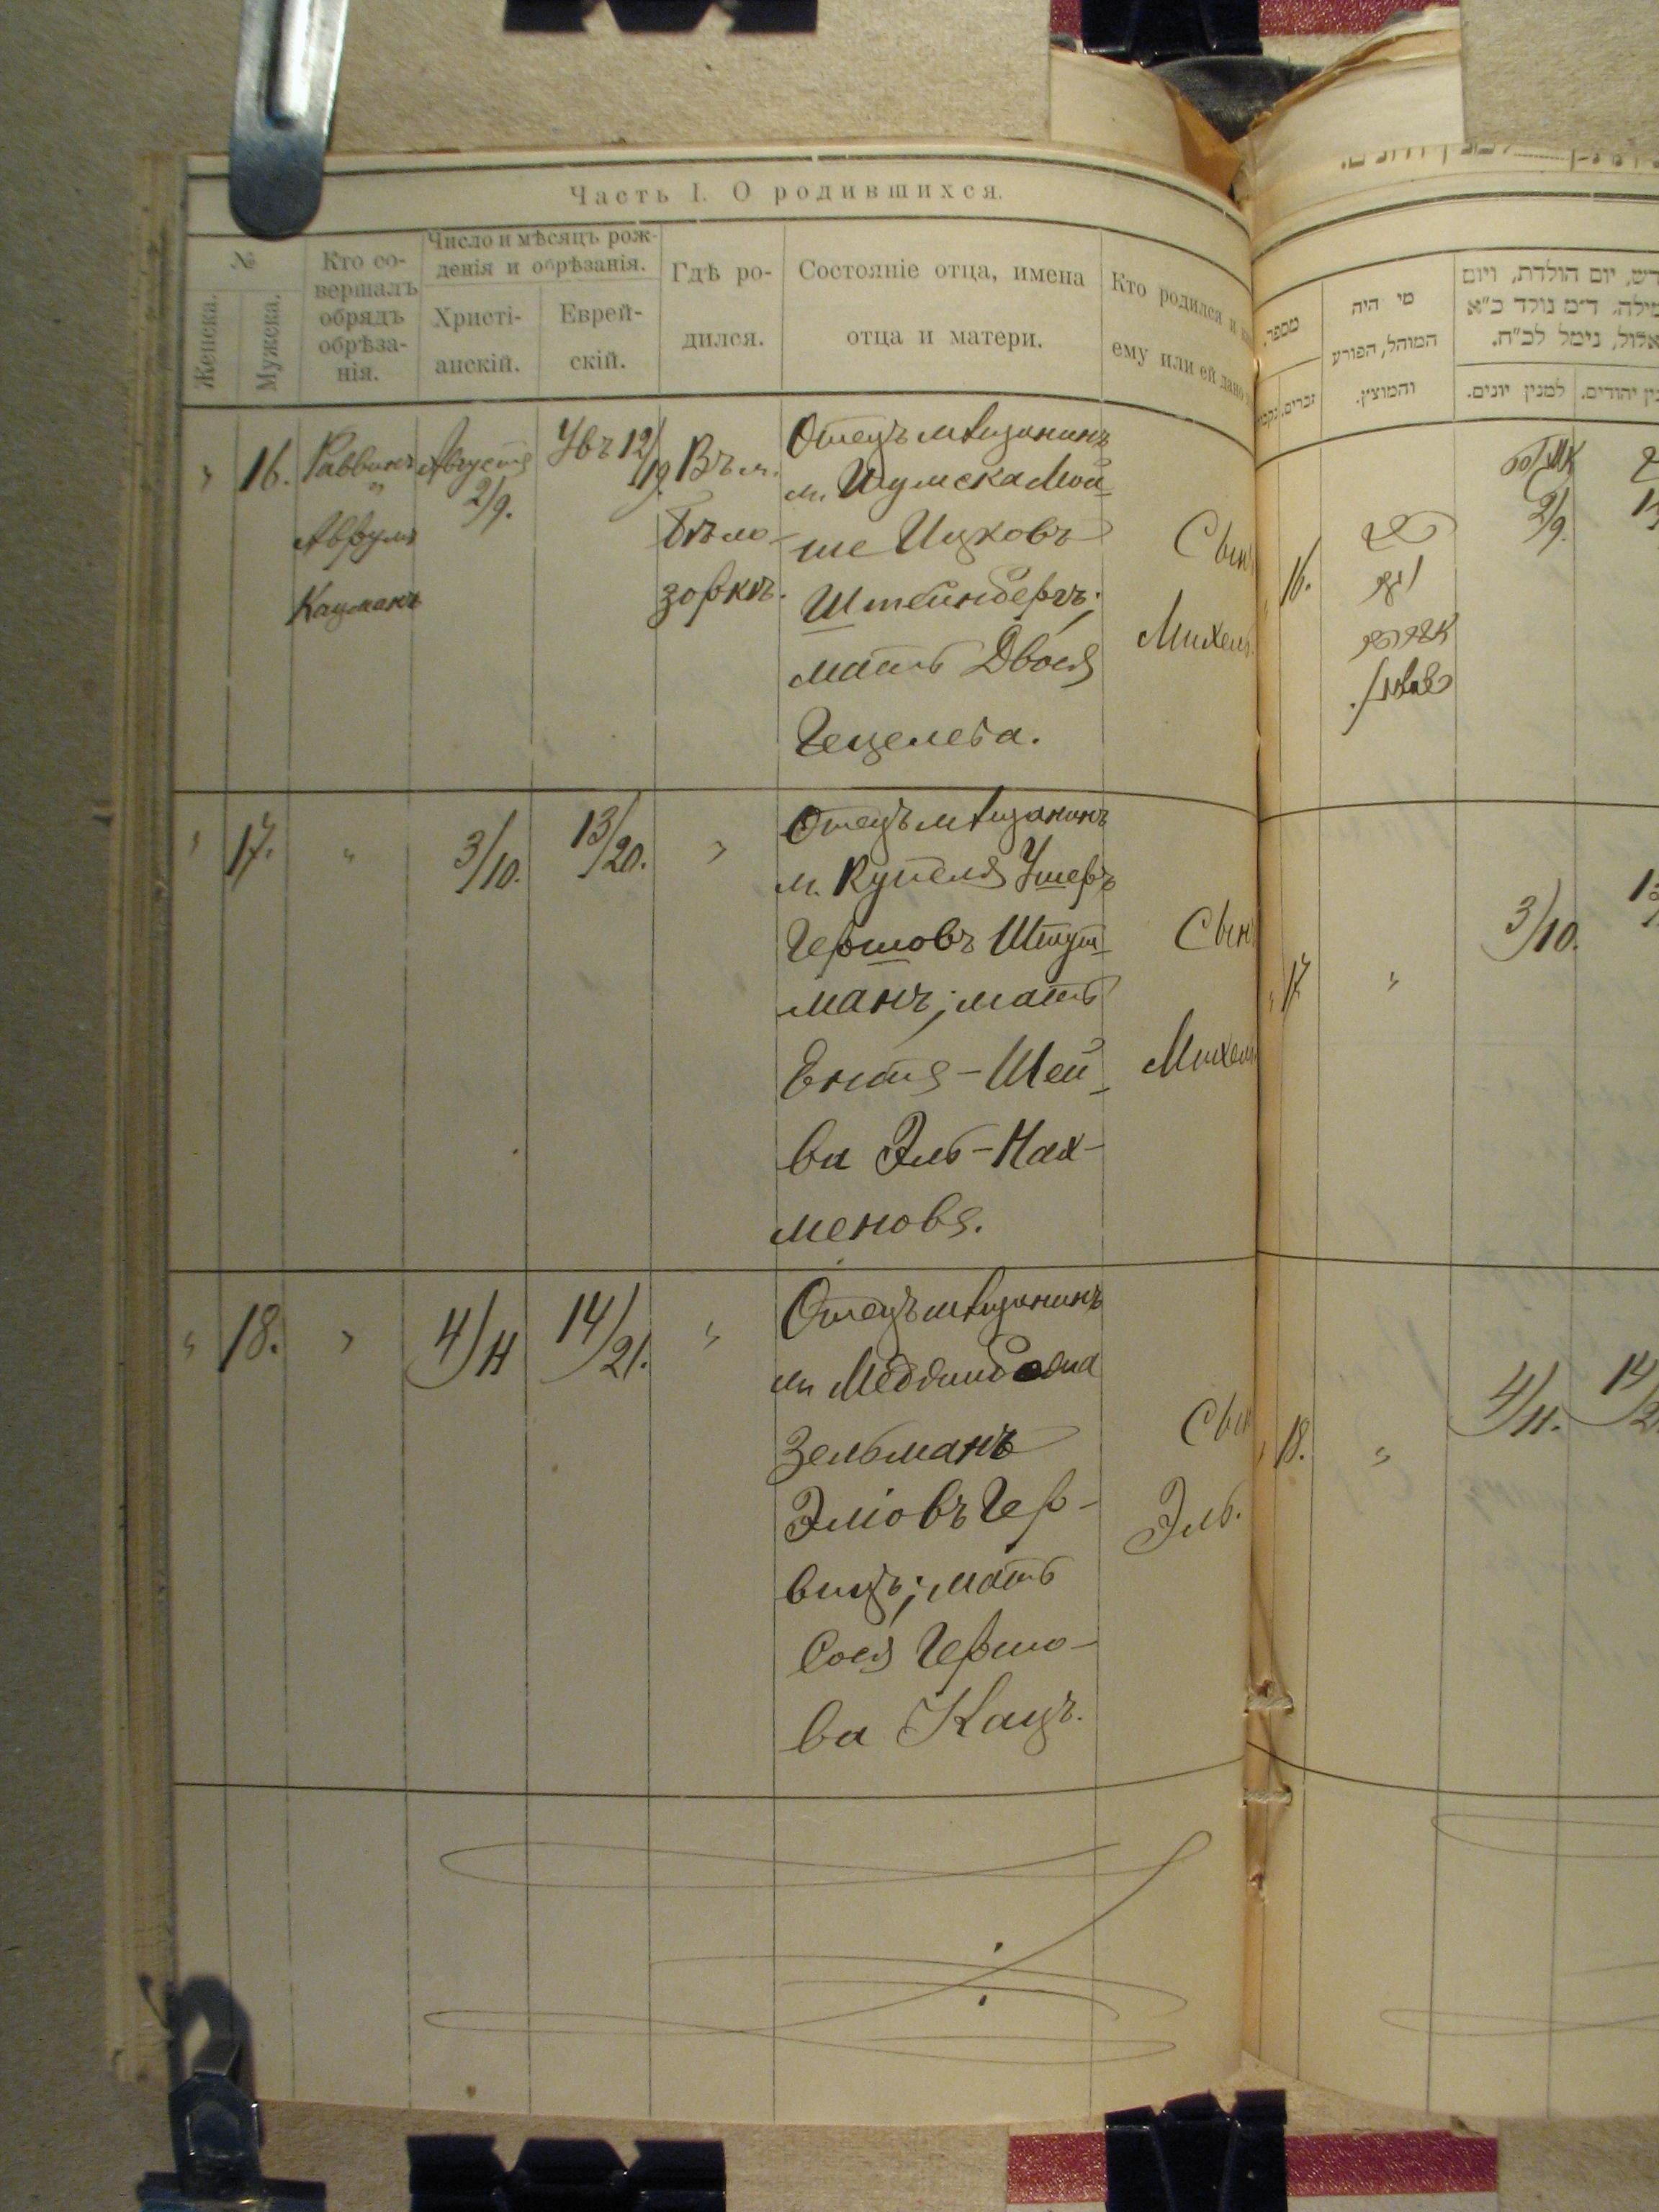 Часть I. О родившихся.
№
Женска.
Мужска.
Кто со-
вершалъ
обрядъ
обрѣза-
нія.
Число и мѣсяцъ рож-
денія и обрѣзанія.
Христі-
анскій.
Еврей-
скій.
Гдѣ ро-
дился.
Состояніе отца, имена
отца и матери.
Кто родился и
ему или ей дано
16.
Раввинъ
Аврумъ
Кацманъ
Августа
2/9.
Увъ 12/
19.
Въ м.
Бѣло-
зоркѣ.
Отецъ мѣщанинъ
м. Шумска Мой-
ше Ицковъ
Штейнбергъ;
мать Двося
Гецелева.
Сынъ
Михель.
17.
"
3/10.
13/20.
"
Отецъ мѣщанинъ
м. Купеля Ушеръ
Гершовъ Штут-
манъ; мать
Ента-Шей-
ва Эль-Нах-
менова.
Сынъ
Михель
18.
"
4/11
14/21.
"
Отецъ мѣщанинъ
м.
Зельманъ
Эліовъ Гер-
вицъ; мать
Сося Гершо-
ва Кацъ.
Сын
Эль.
מספר.
זכרים.
מי היה
המוהל, הפורע
והמוצץ.
דש, יום הולדת, ויום
מילה. ד״מ נולד כ״א
אלול, נימל לכ״ח.
למנין יונים.
ין יהודים.
16.
2/9.
17
"
3/10.
18.
"
4/11.
14/